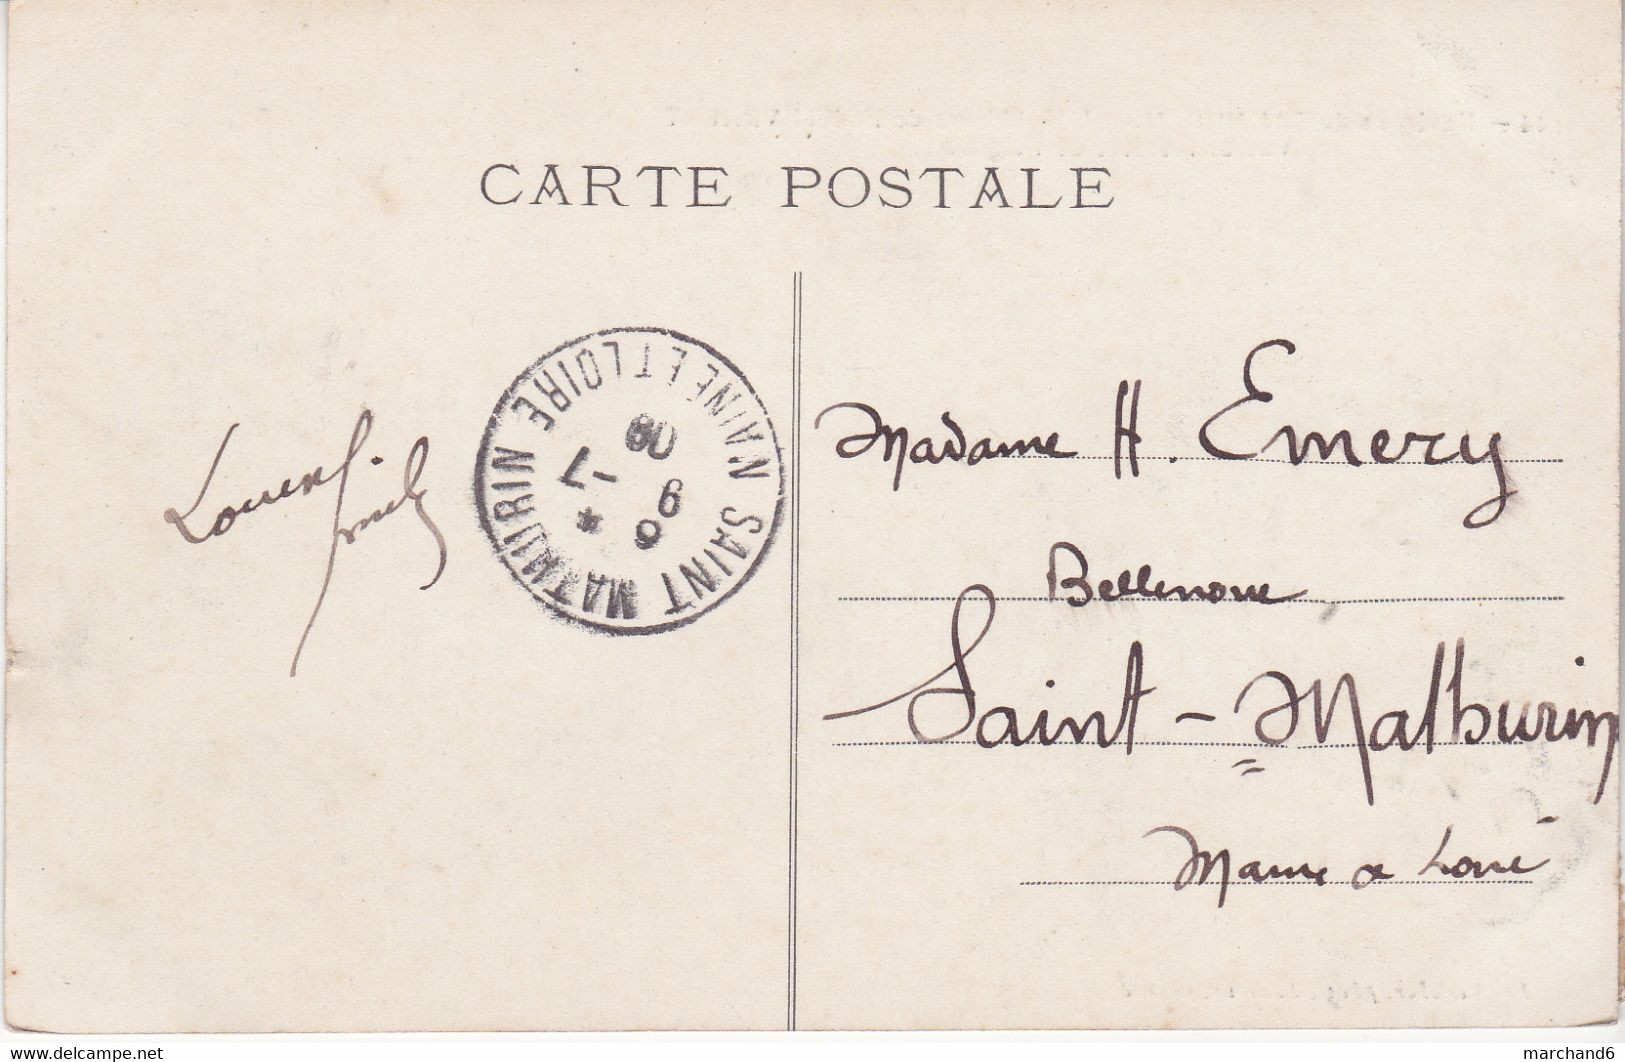 CARTE POSTALE
SAINT MATHURIN
MAINE ET LOIRE
Madame H. Emery
Bellenoue
Saint-Mathurin
Maine & Loire
www.delcampe.net
marchand6